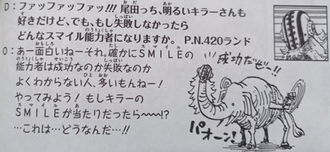 D：ファッファッファッ!!! 尾田っち、明るいキラーさんも
好きだけど、でも、もし失敗しなかったら
どんなスマイル能力者になりますか。 P.N.420ランド
O：あー面白いねーそれ。確かにSMILEの
能力者は成功なのか失敗なのか
よくわからない人、多いもんねー!
やってみよう! もしキラーの
SMILEが当たりだったら〜〜〜!?
…これは…どうなんだ…!!
の成功だぞ…
パオーン!